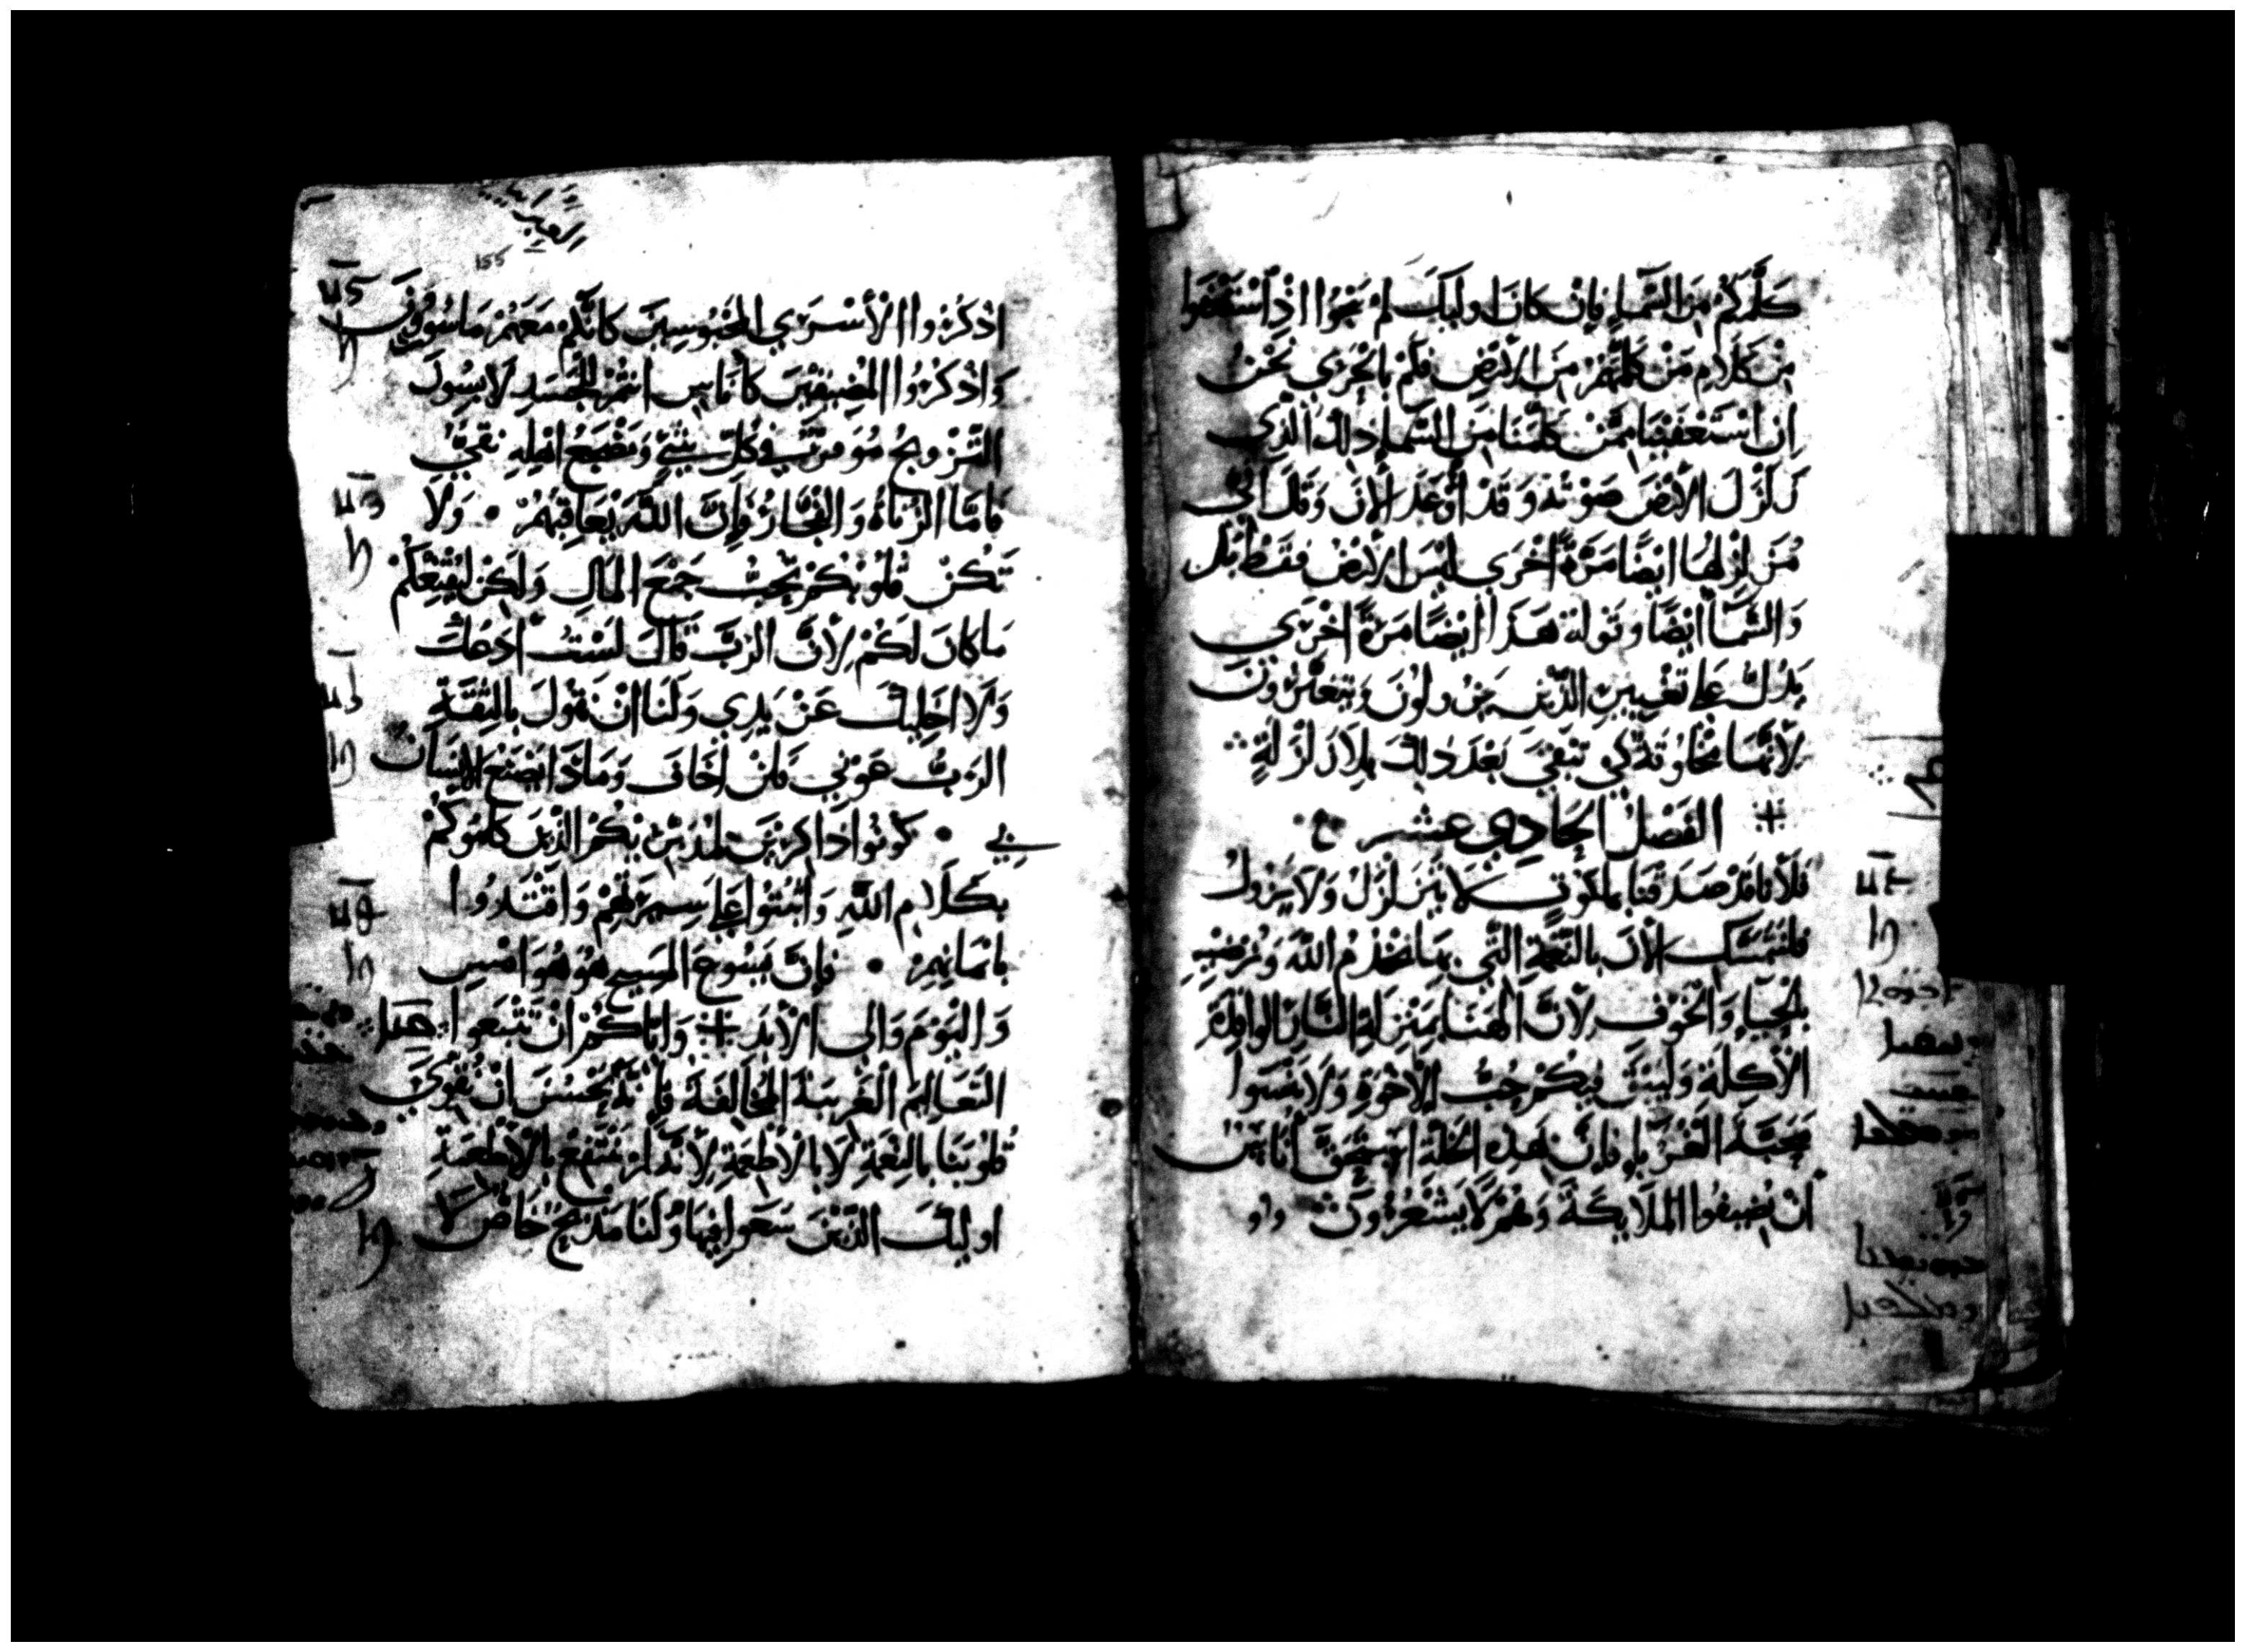 كَلَّمَكُمْ مِنَ السَّمَاءِ فَإِنْ كَانَ اوليك لم يَنْجُوا اذِ اسْتَعْفَوا
مِن كَلَامِ مَنْ كَلَّمَهُمْ مِنَ الأرْضِ فَلَمْ بالْحَرَي نَحْنُ
اِن اسْتَعْفَيْنَا مِمَّنْ كَلَّمَنَا مِنَ السَّمَاءِ ذلك الذِي
زَلْزَلَ الأرْضَ صَوْتَهُ وَقَدْ أوْعَدَ الأنَ وَقَالَ انّى
مُزَلْزِلهُا ايْضًا مَرَّةً اخْرَي لَيْسَ الأرْضَ فَقَطْ بَل
وَالسَّمَا أيْضًا وَقَوْله هَذَا ايْضًا مَرَةً اخْرَي
يَدُلُّ عَلَى تَغْيِيرِ الذِّينَ يَزُولُونَ وَيَتَغَيَّرُونَ
لأنَّهَا مَخْلُوقَة كي تَبْقَي بَعْدَ ذلِكَ بِلا زَلْزَلةٍ
الفَصْلُ الحَادِي عشر
فَلأنا قَدْ صَدَقْنَا بملكوتٍ لا يَتَزَلْزَلُ وَلا يَزولُ
فلنتمسَّك الأنَ بالنِّعْمَةِ التَّي بِهَا نَخْدُمُ اللّهَ وَنُرْضِيهِ
بالحَيَاءِ وَالخَوْفِ لأنَّ الهَنَا بمَنْزِلَةِ النَّارِ
الأكِلَة وَليَبْقَ فِيكُمْ حُبُّ الأخْوَةِ وَلا تَنْسَوا
مَحَبَّةَ الغُرَبَاءِ فَإنَّ بِهَذِه الخَلَّةِ اسْتَحَقَّ أنَاسٌ
أنْ يُضيفُوا المَلايِكَةَ وَهُمْ لا يَشْعُرُونَ
155
اذْكُرُوا الأسْرَي المَحْبُوسِينَ كَانَّكُمْ مَعَهُمْ مَاسُورُونَ
وَاذْكُرُوا المُضِيقِينَ كَأنَاسٍ أنْتُمْ لِلْجَسَدِ لابِسُونَ
التَّزْويجُ مُوَقرٌ فِي كُلِّ شَيْءٍ وَمَضْجَعُ اهْلِهِ نَقِيٌّ
فَامَّا الزُنَاةُ وَالفُجَّارُ فَإِنَّ اللّهَ يُعَاقِبُهُمْ • وَلا
تَكُنْ قُلُوبُكُمْ تُحِبُّ جَمْعَ المَالِ وَلَكِنْ لِيُقْنِعكُمْ
مَا كَانَ لَكُمْ لأنَّ الرَبَّ قَالَ لَسْتُ أدَعُكَ
وَلا اخَلِيكَ عَنْ يَدِي وَلَنَا انْ نَقُولَ بالثِقَةِ
الرَبُّ عَوْني فَلَنْ اخَافَ وَمَاذَا يَصْنَع الانْسَان
بِي • كُونُوا ذَاكِرِينَ لِمُدَبّريْكُمْ الذّينَ كَلَّمُوكُمْ
بِكَلامِ اللّهِ وَاثْبُتُوا عَلَى سِيرَتِهُمْ وَاقْتَدُوا
بايْمَانِهِمْ • فَإِنَّ يَسُوعَ المَسِيحَ هُوَ هُوَ امْسِ
وَاليَوْمَ وَالى الأبَدِ وَاياكُمْ انْ تَتْبَعوا
التَعَاليمَ الغَريبَة المُخَالِفَةَ فَإِنَّهُ يَحْسُنَ انْ نُقَوِّي
قُلُوبَنَا بالنِعْمَةِ لا بالأطْعِمَةِ لأنَّهُ لَمْ يَنْتَفِعْ بالأطْعِمَةِ
اوليكَ الذّيْنَ سَعَوا فِيهَا وَلَنَا مَذْبَحٌ خَاصٌ